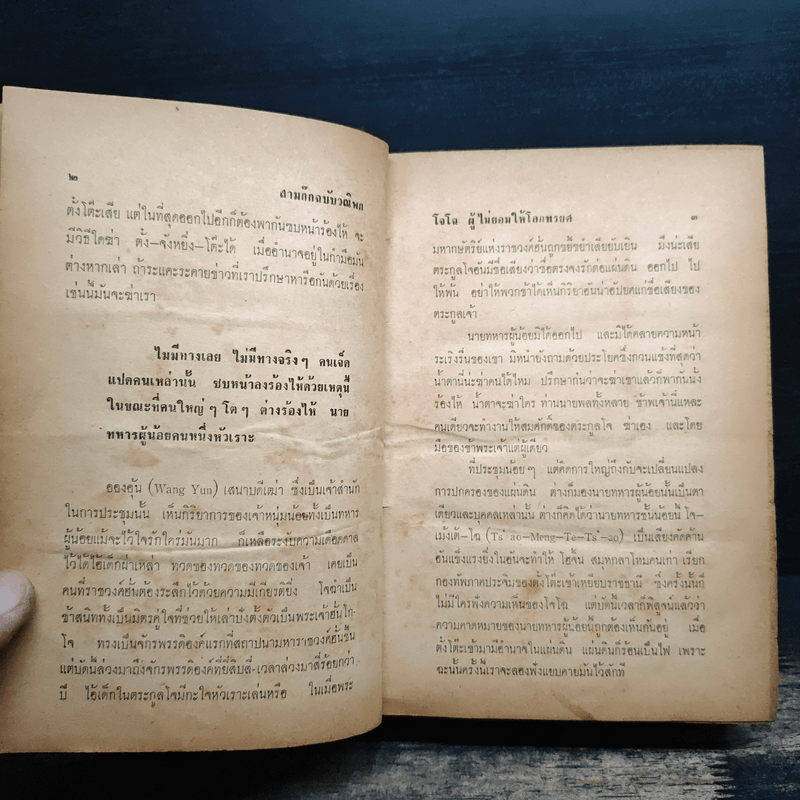 ๒
สามก๊กฉบับวณิพก
ตั้งโต๊ะเสีย แต่ในที่สุดออกไปอีกก็ต้องพากันซบหน้าร้องไห้ จะ
มีวิธีใดฆ่า ตั้ง—จังหยิ่ง—โต๊ะได้ เมื่ออำนาจอยู่ในกำมือมัน
ต่างหากเล่า ถ้าระแคะระคายข่าวที่เราปรึกษาหารือกันด้วยเรื่อง
เช่นนี้มันจะฆ่าเรา
ไม่มีทางเลย ไม่มีทางจริง ๆ คนเจ็ด
แปดคนเหล่านั้น ซบหน้าลงร้องไห้ด้วยเหตุนี้
ในขณะที่คนใหญ่ ๆ โต ๆ ต่างร้องไห้ นาย
ทหารผู้น้อยคนหนึ่งหัวเราะ
อองอุ้น (Wang Yun) เสนาบดีเฒ่า ซึ่งเป็นเจ้าสำนัก
ในการประชุมนั้น เห็นกิริยาการของเจ้าหนุ่มน้อยทั้งเป็นทหาร
ผู้น้อยแม้จะไว้ใจรักใคร่มันมาก ก็เหลือระงับความเดือดดาล
ไว้ได้ ไอ้เด็กผ่าเหล่า ทวดของทวดของทวดของเจ้า เคยเป็น
คนที่ราชวงศ์ฮั่นต้องระลึกไว้ด้วยความมีเกียรติยิ่ง โจฉำเป็น
ข้าสนิททั้งเป็นมิตรคู่ใจที่ช่วยให้เล่าปังตั้งตัวเป็นพระเจ้าฮั่นโก-
โจ ทรงเป็นจักรพรรดิองค์แรกที่สถาปนามหาราชวงศ์ฮั่นขึ้น
แต่บัดนี้ล่วงมาถึงจักรพรรดิองค์ที่ยี่สิบสี่-เวลาล่วงมาสี่ร้อยกว่า
ปี ไอ้เด็กในตระกูลโจมีกะใจหัวเราะเล่นหรือ ในเมื่อพระ
โจโฉ ผู้ไม่ยอมให้โลกทรยศ
๓
มหากษัตริย์แห่งราชวงศ์ฮั่นถูกขยี้ขยำเสียยับเยิน มึงน่ะเสีย
ตระกูลโจอันมีชื่อเสียงว่าซื่อตรงจงรักต่อแผ่นดิน ออกไป ไป
ให้พ้น อย่าให้พวกข้าได้เห็นกิริยาอันน่าอัปยศแก่ชื่อเสียงของ
ตระกูลเจ้า
นายทหารผู้น้อยมิได้ออกไป และมิได้คลายความหน้า
ระเริงรื่นของเขา มิหนำยังถามด้วยประโยคซึ่งกวนแข้งที่สุดว่า
น้ำตานี่น่ะฆ่าคนได้ไหม ปรึกษากันว่าจะฆ่าเขาแล้วก็พากันนั่ง
ร้องไห้ น้ำตาจะฆ่าใคร ท่านนายพลทั้งหลาย ข้าพเจ้านี่แหละ
คนเดียวจะทำงานให้สมศักดิ์ของตระกูลโจ ฆ่าเอง และโดย
มือของข้าพระเจ้าแต่ผู้เดียว
ที่ประชุมน้อย ๆ แต่คิดการใหญ่ถึงกับจะเปลี่ยนแปลง
การปกครองของแผ่นดิน ต่างก็มองนายทหารผู้น้อยนั้นเป็นตา
เดียวและบุคคลเหล่านั้น ต่างก็คิดได้ว่านายทหารชั้นน้อยนี้ โจ—
เม้งเต๊—โฉ (Ts'ao-Meng-Te-Ts'-ao) เป็นเสียงคัดค้าน
อันแข็งแรงยิ่งในอันจะทำให้ โฮจิ๋น สมุหกลาโหมคนเก่า เรียก
กองทัพภาคประจิมของตั้งโต๊ะเข้าเหยียบราชธานี ซึ่งครั้งนั้นก็
ไม่มีใครฟังความเห็นของโจโฉ แต่บัดนี้เวลาก็พิสูจน์แล้วว่า
ความคาดหมายของนายทหารผู้น้อยนี้ถูกต้องเห็นกันอยู่ เมื่อ
ตั้งโต๊ะเข้ามามีอำนาจในแผ่นดิน แผ่นดินก็ร้อนเป็นไฟ เพราะ
ฉะนั้นครั้งนี้เราจะลองฟังแยบคายมันไว้สักที